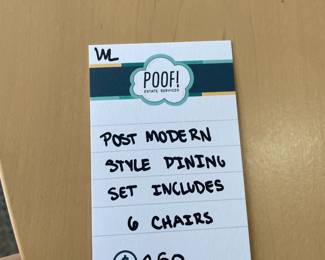 WL
POOF!
ESTATE SERVICES
POST MODERN
STYLE DINING
SET INCLUDES
6 CHAIRS